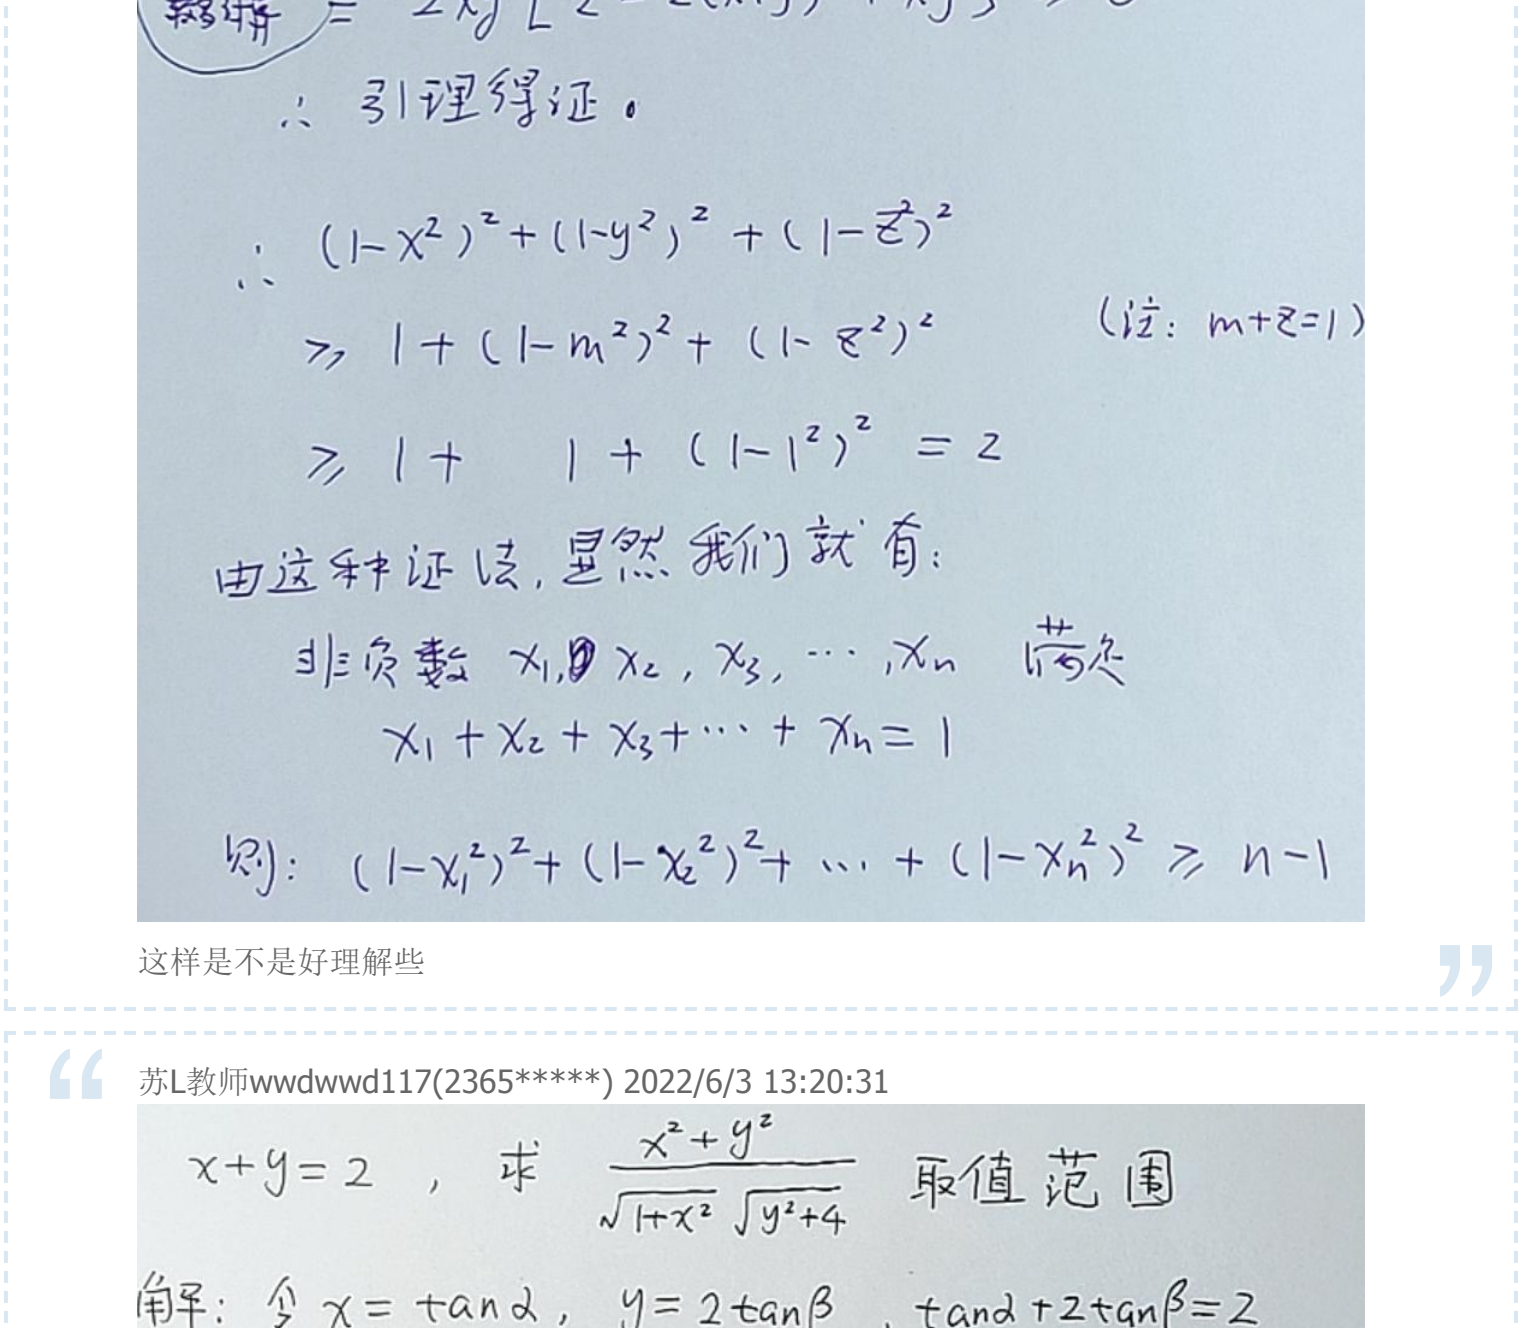 ∴ 引理得证。
∴ (1-x²)²+(1-y²)²+(1-z²)²
≥ 1+(1-m²)²+(1-z²)² (注: m+z=1)
≥ 1+ 1+(1-1²)² = 2
由这种证法,显然我们就有:
非负数 x₁, x₂, x₃, …, xₙ 满足
x₁+x₂+x₃+…+xₙ=1
则: (1-x₁²)²+(1-x₂²)²+…+(1-xₙ²)² ≥ n-1
这样是不是好理解些
苏L教师wwdwwd117(2365*****) 2022/6/3 13:20:31
x+y=2 , 求 (x²+y²)/(√(1+x²) √(y²+4)) 取值范围
解: 令 x=tanα, y=2tanβ, tanα+2tanβ=2